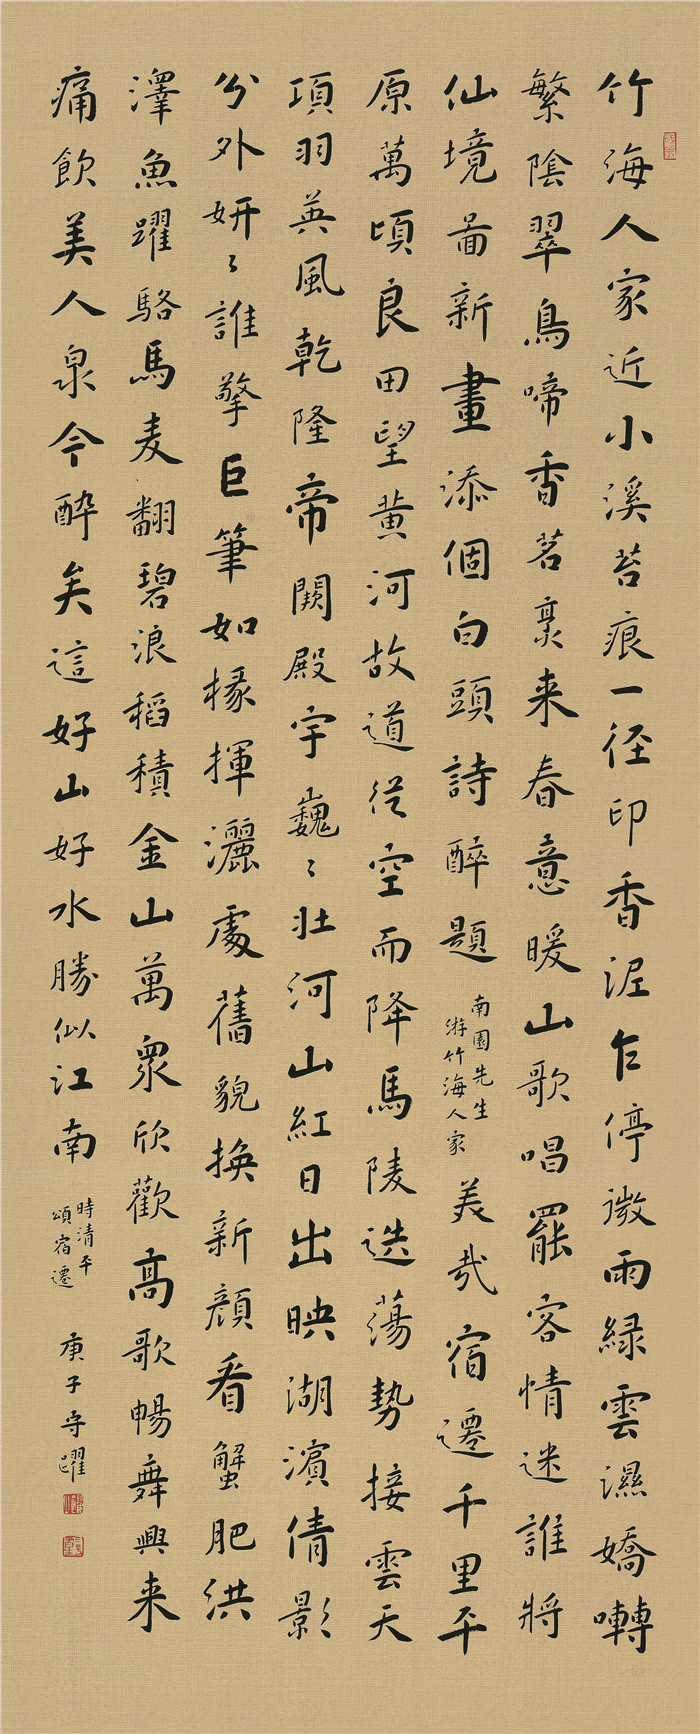 竹海人家近小溪苔痕一径印香泥乍停微雨緑雲濕嬌囀
繁陰翠鳥啼香茗裊来春意暖山歌唱罷客情迷誰將
仙境畵新畫添個白頭詩醉題
南園先生
游竹海人家
美哉宿遷千里平
原萬頃良田望黄河故道從空而降馬陵迭蕩勢接雲天
項羽英風乾隆帝闕殿宇巍〻壮河山紅日出映湖濱倩影
分外妍〻誰擎巨筆如椽揮灑處舊貌換新顔看蟹肥洪
澤魚躍駱馬麦翻碧浪稻積金山萬衆欣歡高歌暢舞興来
痛飲美人泉今醉矣這好山好水勝似江南
時清平
頌宿遷
庚子守躍